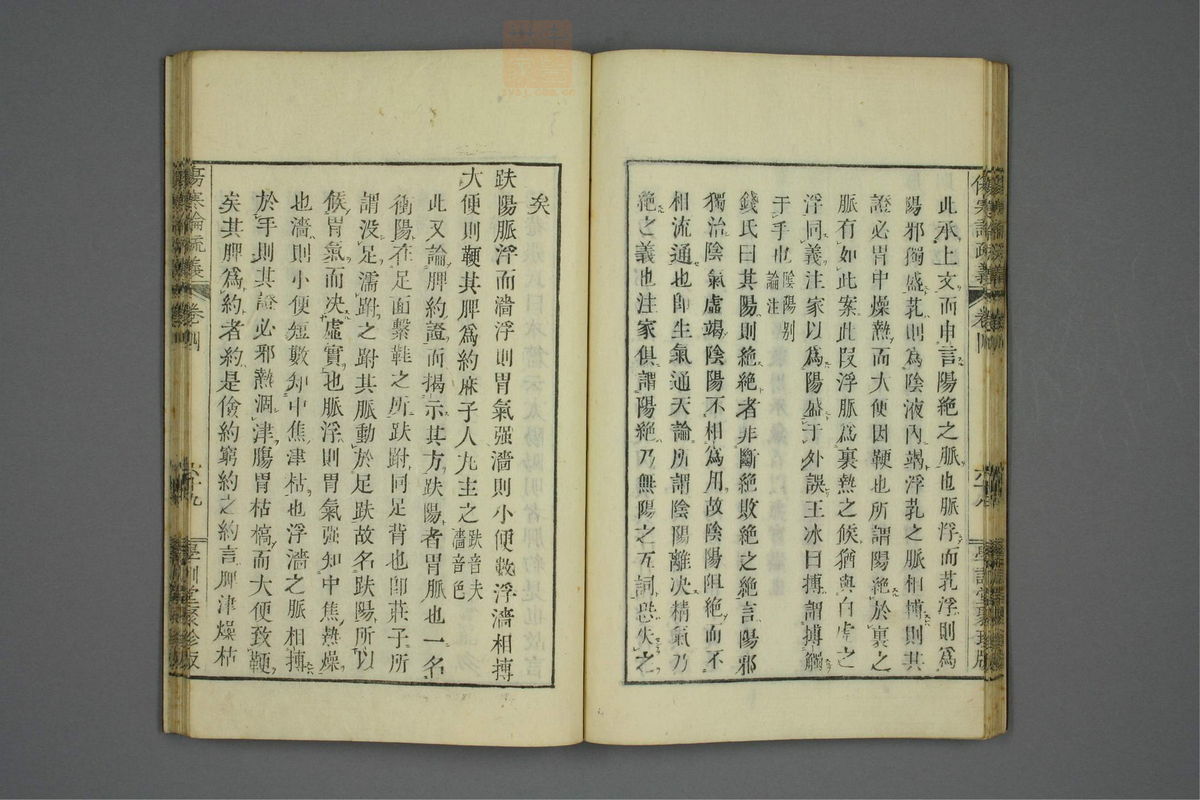 此承上文而申言陽絶之脈也脈浮而芤浮則爲
陽邪獨盛芤則為陰液内竭浮芤之脈相搏則其
證必胃中燥熱而大便因鞕也所謂陽絶於裏之
脈有如此案此段浮脈爲裏熱之候猶與白虎之
浮同義注家以爲陽盛于外誤王冰曰搏謂搏觸
于手也陰陽别論注
錢氏曰其陽則絶絶者非斷絶敗絶之絶言陽邪
獨治陰氣虛竭陰陽不相爲用故陰陽阻絶而不
相流通也即生氣通天論所謂陰陽離决精氣乃
絶之義也注家俱謂陽絶乃無陽之互詞恐失之
矣
趺陽脈浮而濇浮則胃氣强濇則小便數浮濇相搏
大便則鞕其脾爲約麻子人丸主之趺音夫濇音色
此又論脾約證而揭示其方趺陽者胃脈也一名
衝陽在足面繫鞋之所趺跗同足背也即莊子所
謂没足濡跗之跗其脈動於足趺故名趺陽所以
候胃氣而决虛實也脈浮則胃氣强知中焦熱燥
也濇則小便短數知中焦津枯也浮濇之脈相搏
於手則其證必邪熱涸津腸胃枯槁而大便致鞕
矣其脾爲約者約是儉約窮約之約言脾津燥枯
傷寒論疏義
卷四
六十九
學訓堂聚珍版